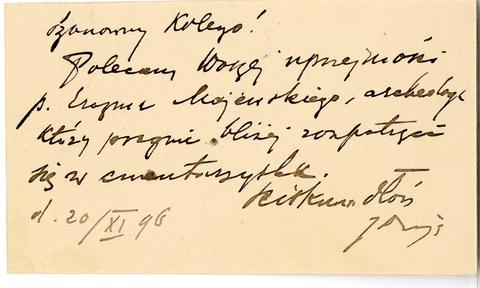 Szanowny Kolego!
Polecam Waszej uprzejmości
p. Erazma Majewskiego, archeologa
który pragnie bliżej rozpatrzeć
się w cmentarzysk.
Ściskam dłoń
d. 20/XI 96